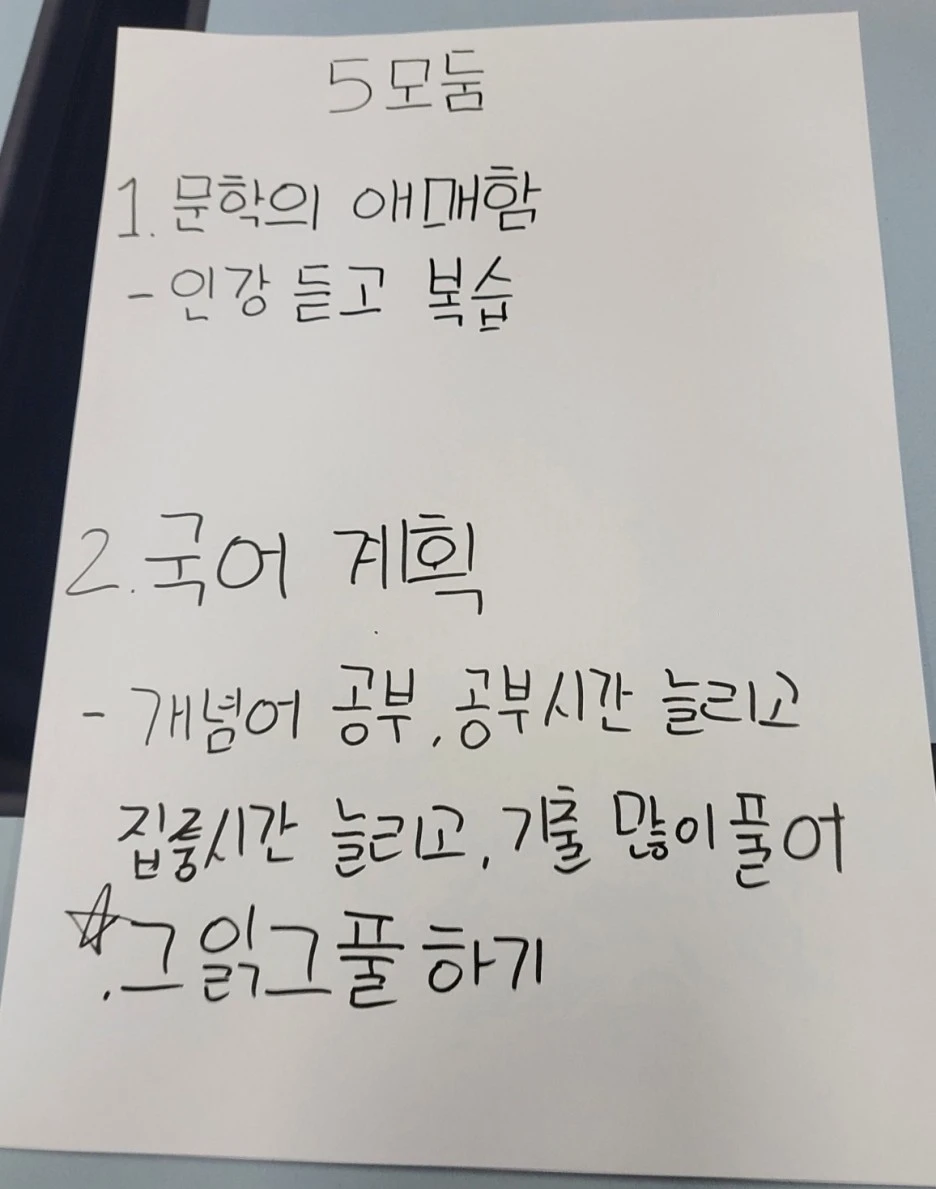 5모둠
1. 문학의 애매함
- 인강 듣고 복습
2. 국어 계획
- 개념어 공부, 공부시간 늘리고
집중시간 늘리고, 기출 많이 풀어
☆. 그읽그풀 하기